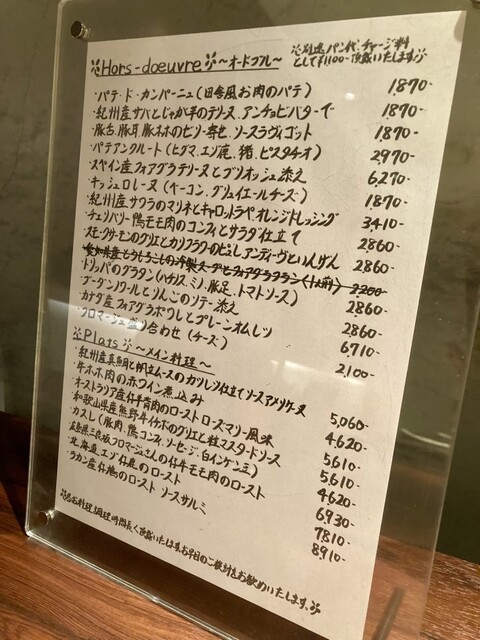 Hors-doeuvre ～オードブル～
※別途パン代、チャージ料
として¥1100-頂戴いたします※
・パテ・ド・カンパーニュ(田舎風お肉のパテ) 1,870-
・紀州産サバとじゃが芋のテリーヌ、アンチョビバターで 1,870-
・豚舌、豚耳、豚ホホのゼリー寄せ、ソースラヴィゴット 1,870-
・パテアンクルート(ヒグマ、エゾ鹿、猪、ピスタチオ) 2,970-
・スペイン産フォアグラテリーヌとブリオッシュ添え 6,270-
・キッシュロレーヌ(ベーコン、グリュイエールチーズ) 1,870-
・紀州産サワラのマリネとキャロットラペオレンジドレッシング 3,410-
・チェリバリー鴨モモ肉のコンフィとサラダ仕立て 2,860-
・スモークサーモンのグリエとカリフラワーのピュレアンディーヴといんげん 2,860-
・愛知県産とうもろこしの冷製スープとフォアグラフラン(1人前) 2,200-
・トリッパのグラタン(ハチノス、ミノ、豚足、トマトソース) 2,860-
・ブーダンノワールとりんごのソテー添え 2,860-
・カナダ産フォアグラポワレとプレーンオムレツ 6,710-
・フロマージュ盛り合わせ(チーズ) 2,100-
※Plats※
～メイン料理～
・紀州産真鯛と帆立ムースのカツレツ仕立てソースアメリケーヌ 5,060-
・牛ホホ肉の赤ワイン煮込み 4,620-
・オーストラリア産仔羊背肉のローストローズマリー風味 5,610-
・和歌山県産熊野牛イチボのグリエと粒マスタードソース 5,610-
・カスレ(豚肉、鴨コンフィ、ソーセージ、白インゲン豆) 4,620-
・広島県三良坂フロマージュさんの仔牛モモ肉のロースト 6,930-
・北海道エゾ仔鹿のロースト 7,810-
・ラカン産仔鳩のロースト ソースサルミ 8,910-
※各お料理、調理時間長く頂戴いたします。お早目のご検討をお勧めいたします。※